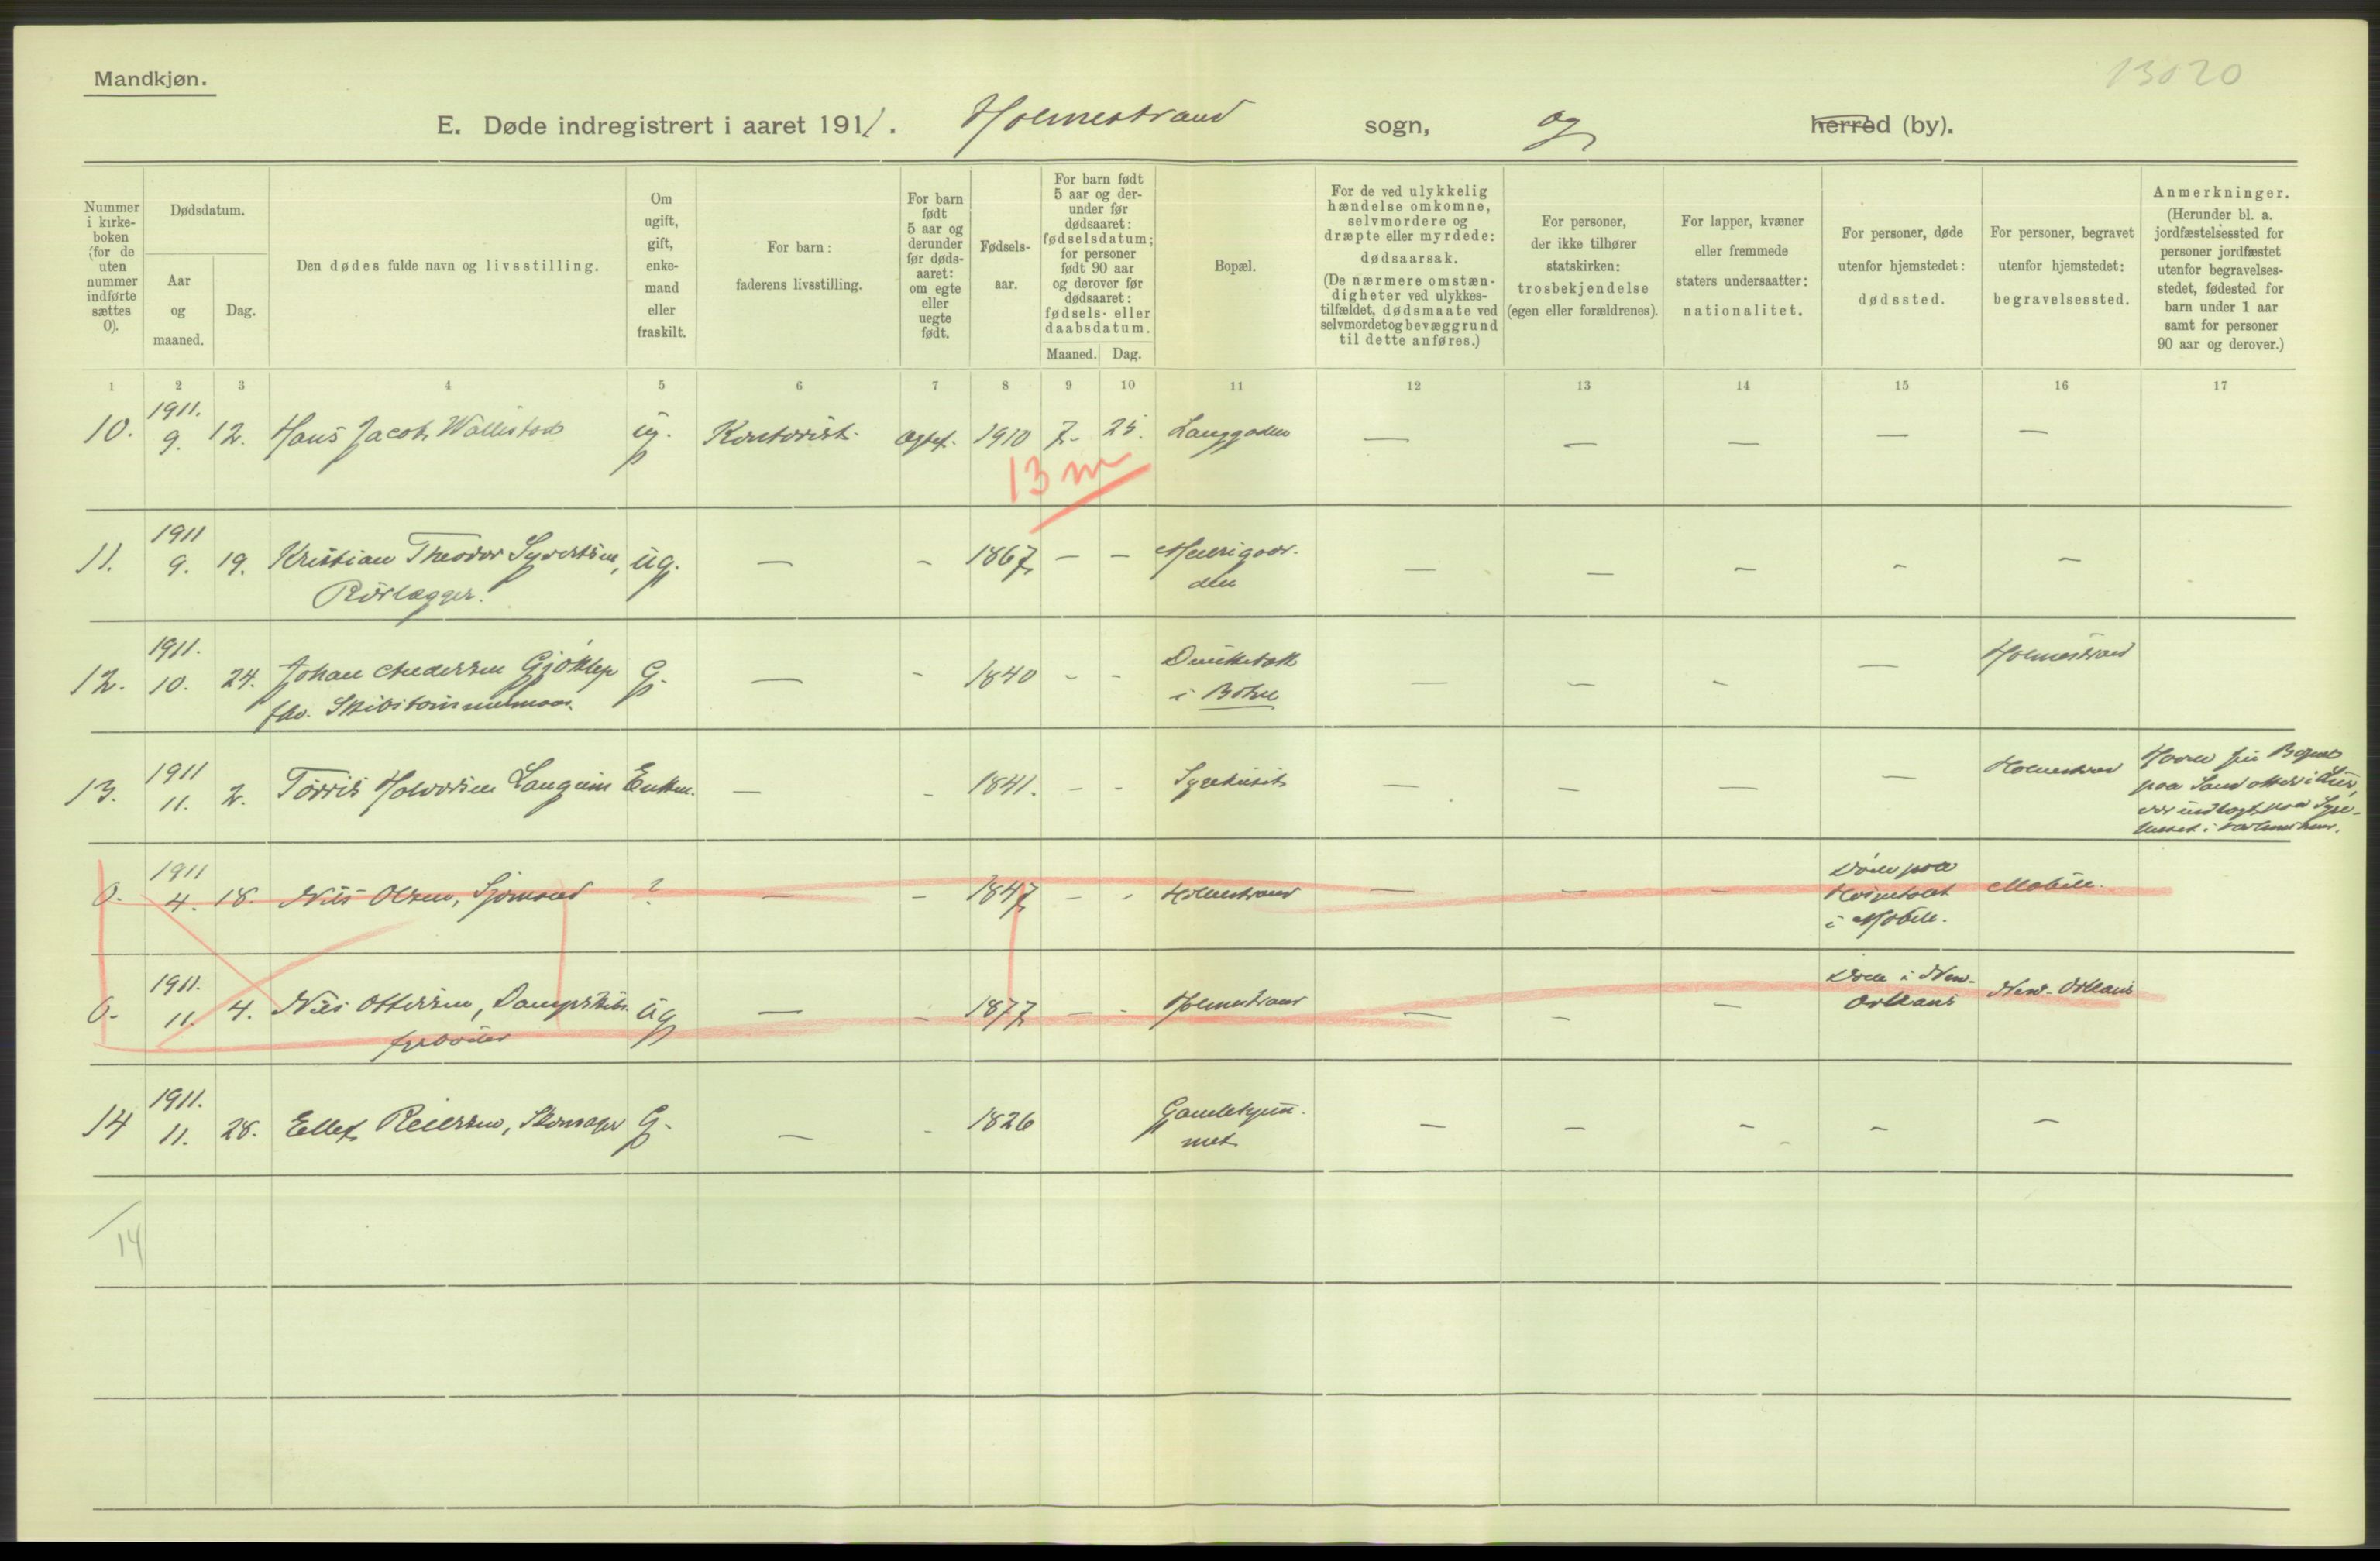 Mandkjøn.
13020
E. Døde indregistrert i aaret 1911. Holmestrand sogn, og herred (by).
Nummer i kirke-boken (for de uten nummer indførte sættes 0).
Dødsdatum.
Aar og maaned.
Dag.
Den dødes fulde navn og livsstilling.
Om ugift, gift, enke-mand eller fraskilt.
For barn: faderens livsstilling.
For barn født 5 aar og derunder før døds-aaret: om egte eller uegte født.
Fødsels-aar.
For barn født 5 aar og der-under før dødsaaret: fødselsdatum; for personer født 90 aar og derover før dødsaaret: fødsels- eller daabsdatum.
Maaned. Dag.
Bopæl.
For de ved ulykkelig hændelse omkomne, selvmordere og dræpte eller myrdede: dødsaarsak. (De nærmere omstæn-digheter ved ulykkes-tilfældet, dødsmaate ved selvmordet og bevæggrund til dette anføres.)
For personer, der ikke tilhører statskirken: trosbekjendelse (egen eller forældrenes).
For lapper, kvæner eller fremmede staters undersaatter: nationalitet.
For personer, døde utenfor hjemstedet: dødssted.
For personer, begravet utenfor hjemstedet: begravelsessted.
Anmerkninger. (Herunder bl. a. jordfæstelsessted for personer jordfæstet utenfor begravelses-stedet, fødested for barn under 1 aar samt for personer 90 aar og derover.)
1 2 3 4 5 6 7 8 9 10 11 12 13 14 15 16 17
10. 1911. 9. 12. Hans Jacob ug. Kontorist. 1910 7. 25. Langgaden — — — — —
13 m
11. 1911 9. 19. Kristian Theodor Syvertsen, ug. — - 1867 — — — — — - —
Rørlægger.
12. 1911. 10. 24. Johan Andersen Gjøklep G. — - 1840 - - — — - — Holmestrand
fhv. Skibstømmermand. i Botne
13. 1911 11. 2. Torris Halvorsen Enkem. — - 1841. - - Sygehuset — — — — Holmestrand
0. 1911 4. 18. Nils Olsen, Sjømand ? — - 1847 - - Holmestrand — — — Døde paa Hospitalet i Mobile. Mobile.
0. 1911. 11. 4. Nils Ottersen, Dampskibs ug — - 1877 — - Holmestrand — — — Døde i New-Orleans New-Orleans
fyrbøder
14 1911. 11. 28. Ellef Reiersen, Skomager G. — - 1826 — — - - —
14